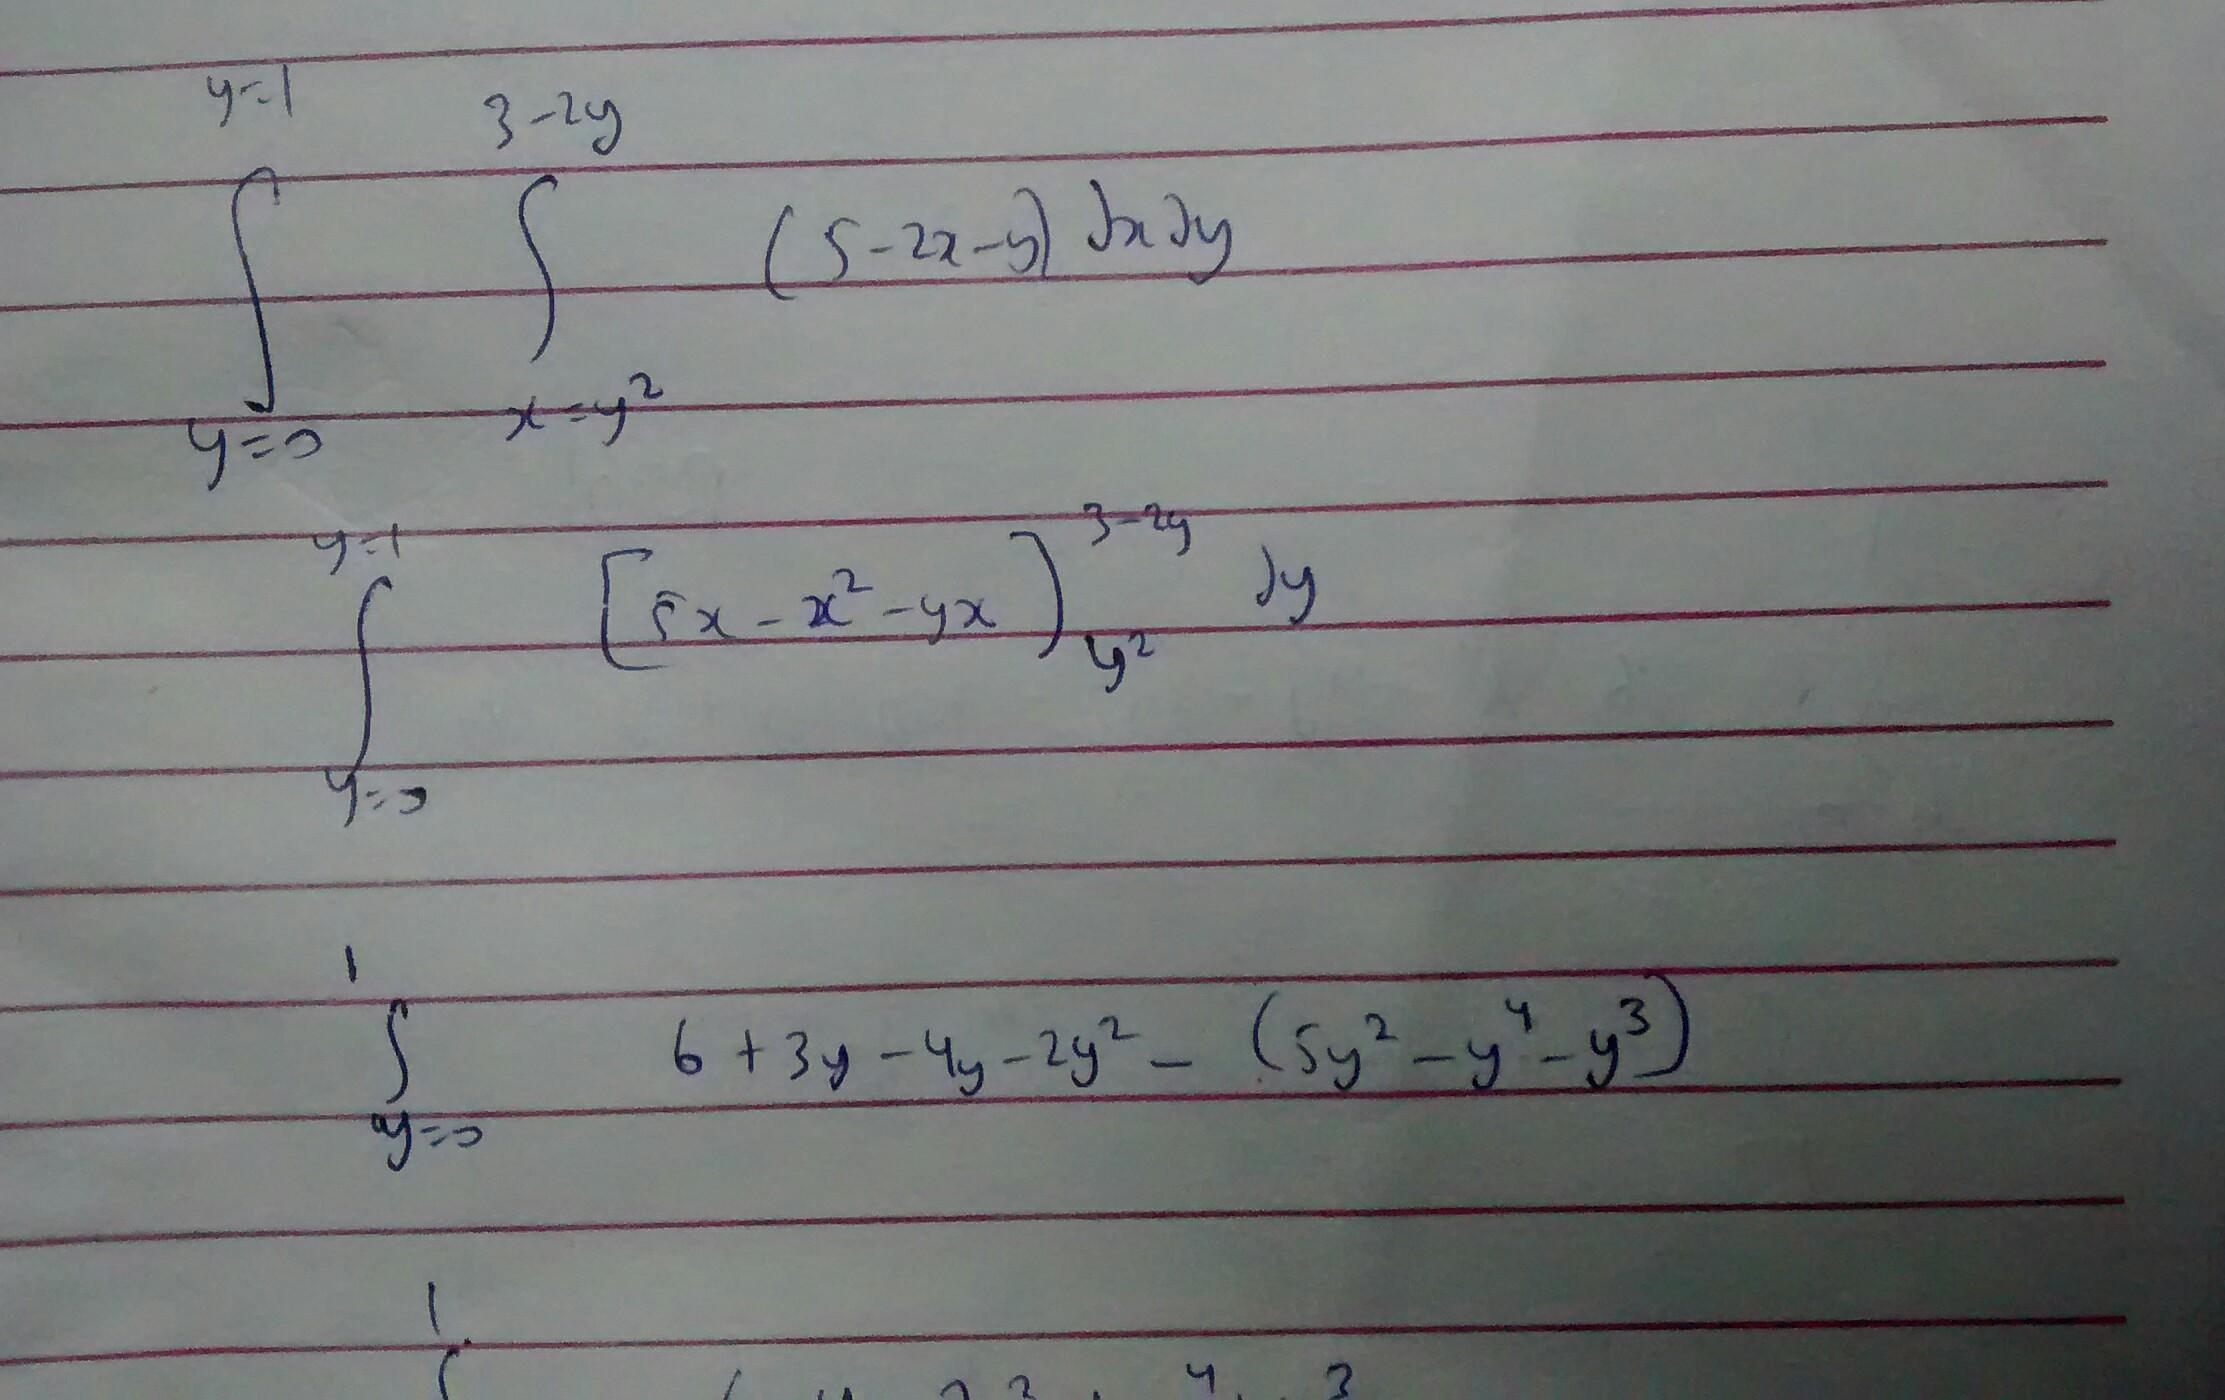 ∫_{y=0}^{y=1} ∫_{x=y²}^{3-2y} (5-2x-y) dx dy
∫_{y=0}^{y=1} [5x - x² - yx]_{y²}^{3-2y} dy
∫_{y=0}^{1} 6 + 3y - 4y - 2y² - (5y² - y⁴ - y³)